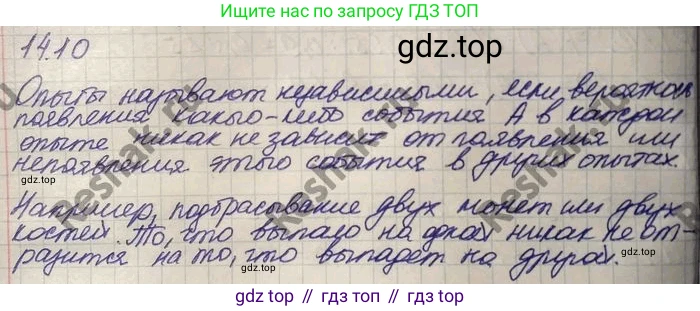 Ищите нас по запросу ГДЗ ТОП
14.10
gdz.top
Опыты называют независимыми, если вероятность
появления какого-либо события А в каждом
опыте никак не зависит от появления или
непоявления этого события в других опытах.
gdz.top
gdz.top
Например, подбрасывание двух монет или двух
костей. То, что выпало на одной никак не от-
разится на то, что выпадет на другой.
gdz.top
gdz.top // гдз топ // гдз.топ
reshak.ru